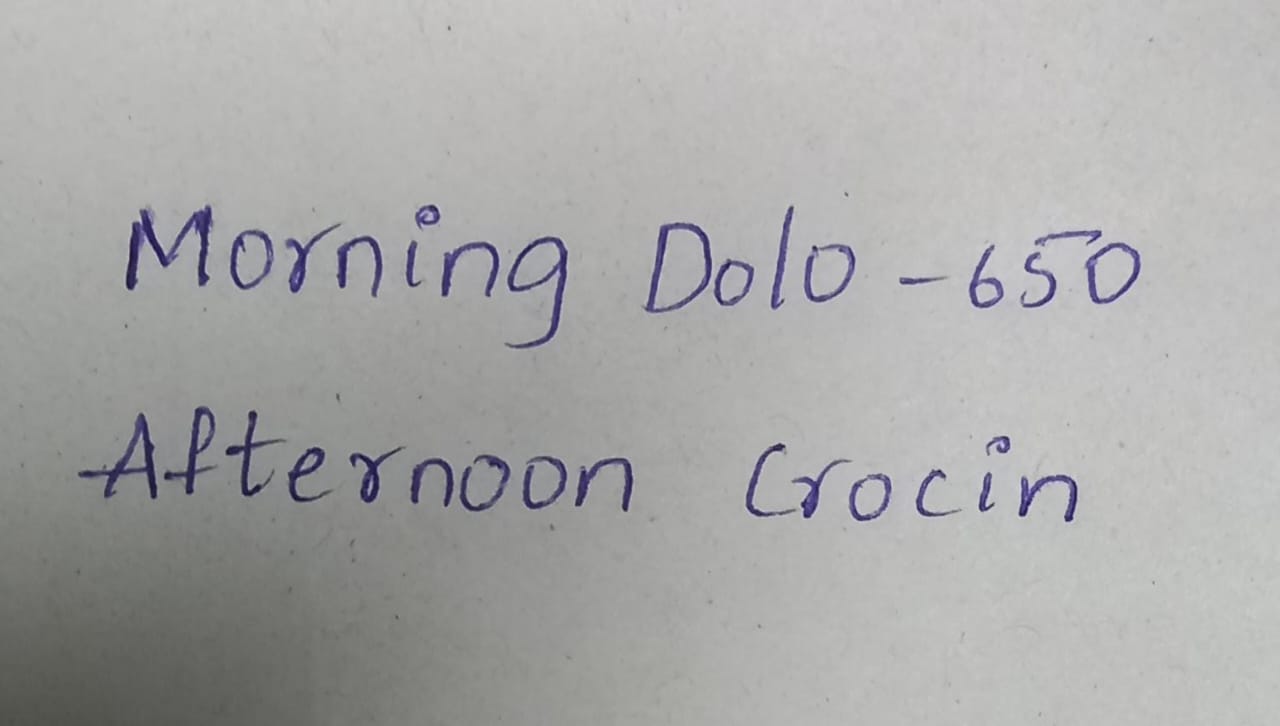 Morning Dolo - 650
Afternoon Crocin